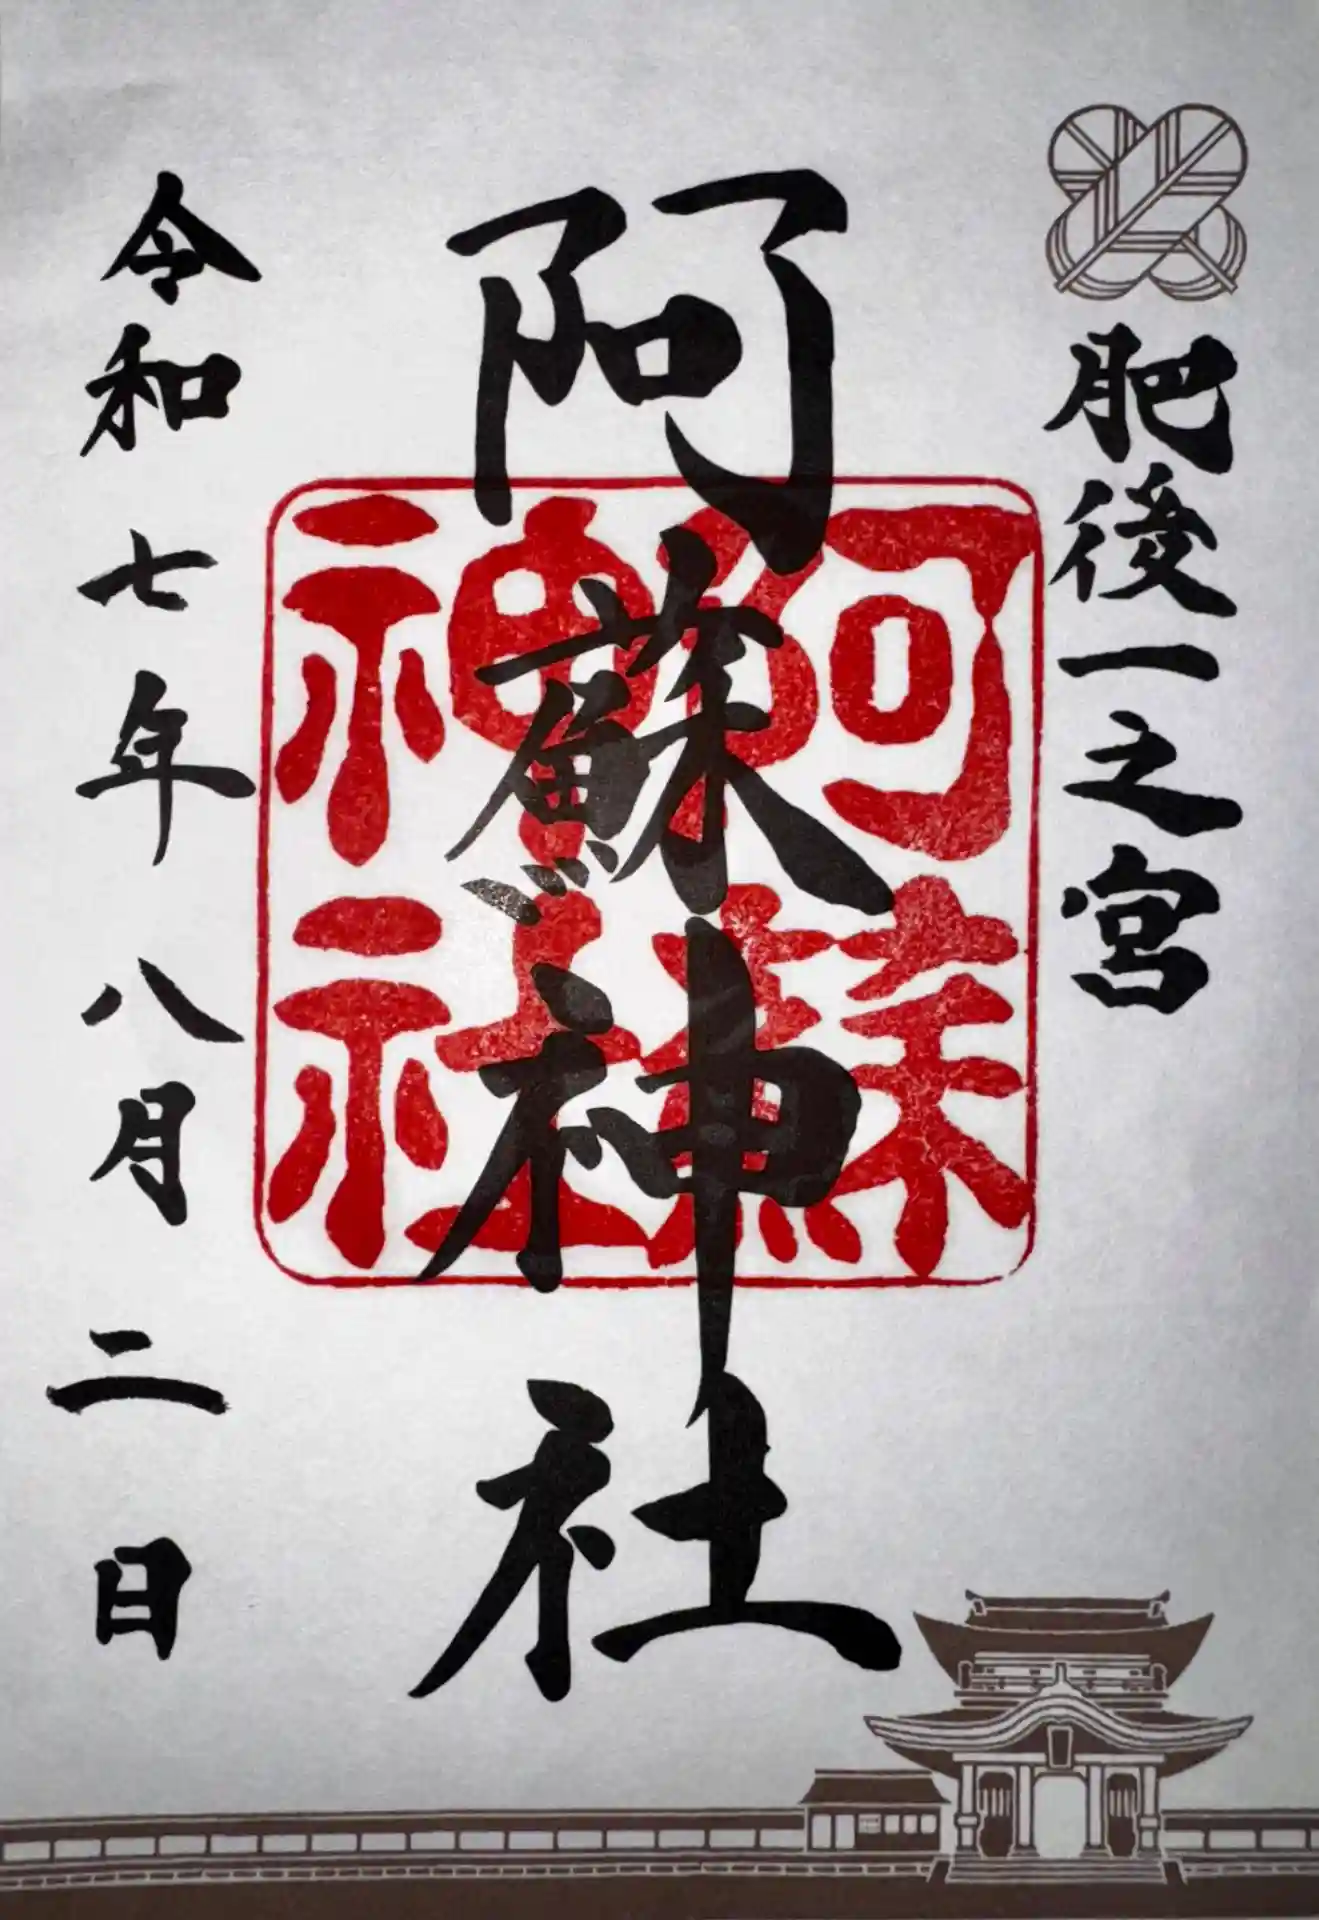 肥後一之宮
阿蘇神社
阿蘇
神社
令和七年八月二日